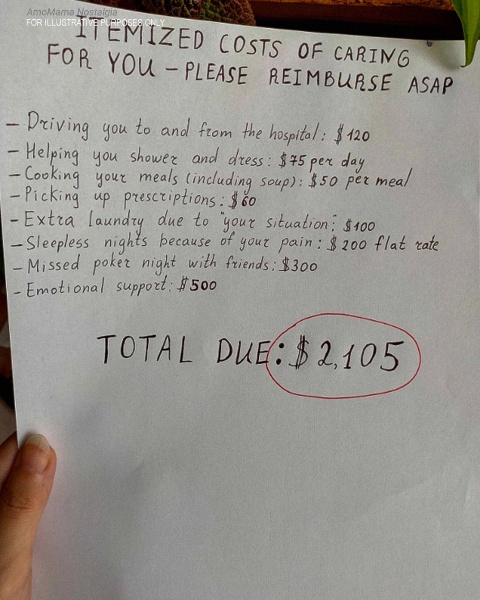 AmoMama Nostalgia
FOR ILLUSTRATIVE PURPOSES ONLY
ITEMIZED COSTS OF CARING
FOR YOU – PLEASE REIMBURSE ASAP
– Driving you to and from the hospital: $120
– Helping you shower and dress: $75 per day
– Cooking your meals (including soup): $50 per meal
– Picking up prescriptions: $60
– Extra laundry due to "your situation": $100
– Sleepless nights because of your pain: $200 flat rate
– Missed poker night with friends: $300
– Emotional support: $500
TOTAL DUE: $2,105